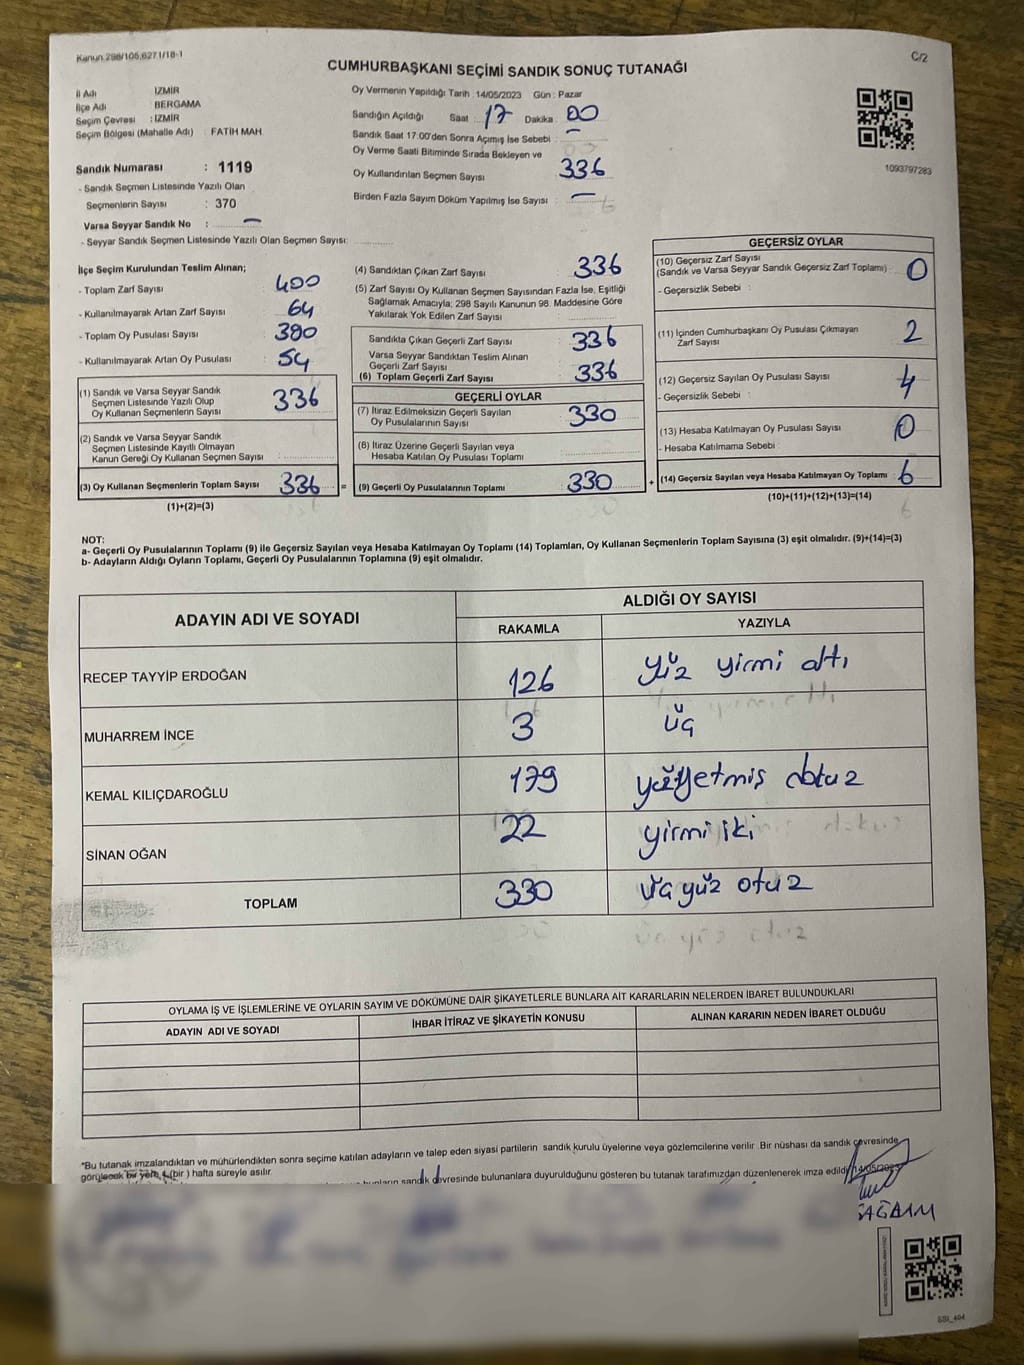 Kanun 298/105,6271/18-1
C/2
CUMHURBAŞKANI SEÇİMİ SANDIK SONUÇ TUTANAĞI
İl Adı İZMİR
İlçe Adı BERGAMA
Seçim Çevresi : İZMİR
Seçim Bölgesi (Mahalle Adı) : FATİH MAH.
Sandık Numarası : 1119
- Sandık Seçmen Listesinde Yazılı Olan
Seçmenlerin Sayısı : 370
Varsa Seyyar Sandık No : –
- Seyyar Sandık Seçmen Listesinde Yazılı Olan Seçmen Sayısı:
Oy Vermenin Yapıldığı Tarih : 14/05/2023 Gün : Pazar
Sandığın Açıldığı Saat : 17 Dakika : 00
Sandık Saat 17:00'den Sonra Açılmış İse Sebebi : –
Oy Verme Saati Bitiminde Sırada Bekleyen ve
Oy Kullandırılan Seçmen Sayısı 336
Birden Fazla Sayım Döküm Yapılmış İse Sayısı : –
1093797283
İlçe Seçim Kurulundan Teslim Alınan;
- Toplam Zarf Sayısı : 400
- Kullanılmayarak Artan Zarf Sayısı : 64
- Toplam Oy Pusulası Sayısı : 390
- Kullanılmayarak Artan Oy Pusulası : 54
(1) Sandık ve Varsa Seyyar Sandık
Seçmen Listesinde Yazılı Olup
Oy Kullanan Seçmenlerin Sayısı : 336
(2) Sandık ve Varsa Seyyar Sandık
Seçmen Listesinde Kayıtlı Olmayan
Kanun Gereği Oy Kullanan Seçmen Sayısı :
(3) Oy Kullanan Seçmenlerin Toplam Sayısı : 336 =
(1)+(2)=(3)
(4) Sandıktan Çıkan Zarf Sayısı : 336
(5) Zarf Sayısı Oy Kullanan Seçmen Sayısından Fazla İse, Eşitliği
Sağlamak Amacıyla; 298 Sayılı Kanunun 98. Maddesine Göre
Yakılarak Yok Edilen Zarf Sayısı :
Sandıkta Çıkan Geçerli Zarf Sayısı : 336
Varsa Seyyar Sandıktan Teslim Alınan
Geçerli Zarf Sayısı :
(6) Toplam Geçerli Zarf Sayısı : 336
GEÇERLİ OYLAR
(7) İtiraz Edilmeksizin Geçerli Sayılan
Oy Pusulalarının Sayısı : 330
(8) İtiraz Üzerine Geçerli Sayılan veya
Hesaba Katılan Oy Pusulası Toplamı :
(9) Geçerli Oy Pusulalarının Toplamı : 330 +
GEÇERSİZ OYLAR
(10) Geçersiz Zarf Sayısı
(Sandık ve Varsa Seyyar Sandık Geçersiz Zarf Toplamı) : 0
- Geçersizlik Sebebi :
(11) İçinden Cumhurbaşkanı Oy Pusulası Çıkmayan
Zarf Sayısı : 2
(12) Geçersiz Sayılan Oy Pusulası Sayısı : 4
- Geçersizlik Sebebi :
(13) Hesaba Katılmayan Oy Pusulası Sayısı : 0
- Hesaba Katılmama Sebebi :
(14) Geçersiz Sayılan veya Hesaba Katılmayan Oy Toplamı : 6
(10)+(11)+(12)+(13)=(14)
NOT:
a- Geçerli Oy Pusulalarının Toplamı (9) ile Geçersiz Sayılan veya Hesaba Katılmayan Oy Toplamı (14) Toplamları, Oy Kullanan Seçmenlerin Toplam Sayısına (3) eşit olmalıdır. (9)+(14)=(3)
b- Adayların Aldığı Oyların Toplamı, Geçerli Oy Pusulalarının Toplamına (9) eşit olmalıdır.
ADAYIN ADI VE SOYADI ALDIĞI OY SAYISI
RAKAMLA YAZIYLA
RECEP TAYYİP ERDOĞAN 126 yüz yirmi altı
MUHARREM İNCE 3 üç
KEMAL KILIÇDAROĞLU 179 yüzyetmiş dokuz
SİNAN OĞAN 22 yirmi iki
TOPLAM 330 üçyüz otuz
OYLAMA İŞ VE İŞLEMLERİNE VE OYLARIN SAYIM VE DÖKÜMÜNE DAİR ŞİKAYETLERLE BUNLARA AİT KARARLARIN NELERDEN İBARET BULUNDUKLARI
ADAYIN ADI VE SOYADI İHBAR İTİRAZ VE ŞİKAYETİN KONUSU ALINAN KARARIN NEDEN İBARET OLDUĞU
*Bu tutanak imzalandıktan ve mühürlendikten sonra seçime katılan adayların ve talep eden siyasi partilerin sandık kurulu üyelerine veya gözlemcilerine verilir. Bir nüshası da sandık çevresinde
görülecek bir yere 1 (bir ) hafta süreyle asılır.
sandık çevresinde bulunanlara duyurulduğunu gösteren bu tutanak tarafımızdan düzenlenerek imza edildi. 14/05/2023